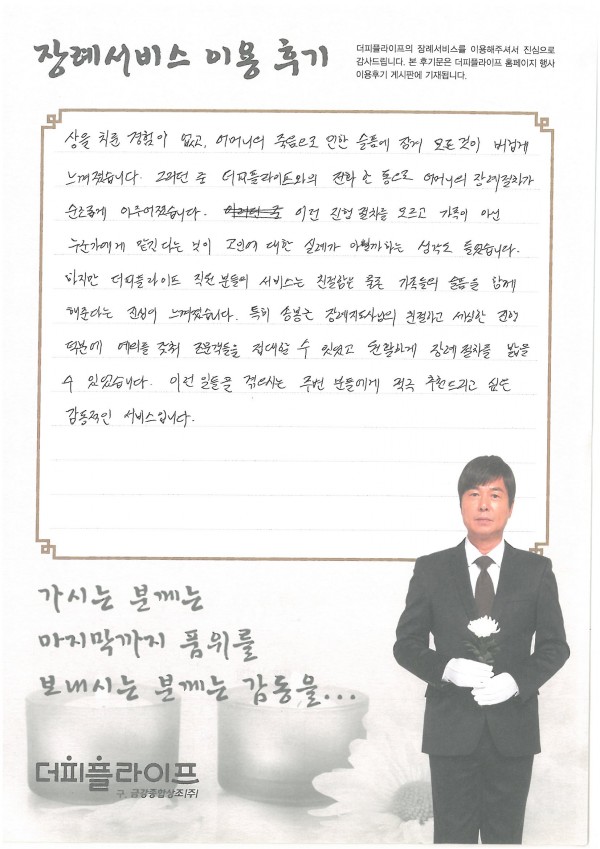 장례서비스 이용 후기
더피플라이프의 장례서비스를 이용해주셔서 진심으로
감사드립니다. 본 후기문은 더피플라이프 홈페이지 행사
이용후기 게시판에 기재됩니다.
상을 치룬 경험이 없고, 어머니의 죽음으로 인한 슬픔에 잠겨 모든 것이 버겁게
느껴졌습니다. 그러던 중 더피플라이프와의 전화 한 통으로 어머니의 장례절차가
순조롭게 이루어졌습니다. 이러던 중 이런 진행 절차를 모르고 가족이 아닌
누군가에게 맡긴다는 것이 고인에 대한 실례가 아닐까하는 생각도 들었습니다.
하지만 더피플라이프 직원분들의 서비스는 친절함은 물론 가족들의 슬픔을 함께
해준다는 진심이 느껴졌습니다. 특히 송봉근 장례지도사님의 친절하고 세심한 진행
덕분에 예의를 갖춰 조문객들을 접대할 수 있었고 원활하게 장례절차를 밟을
수 있었습니다. 이런 일들을 겪으시는 주변 분들에게 적극 추천드리고 싶은
감동적인 서비스입니다.
가시는 분께는
마지막까지 품위를
보내시는 분께는 감동을...
더피플라이프
구. 금강종합상조(주)